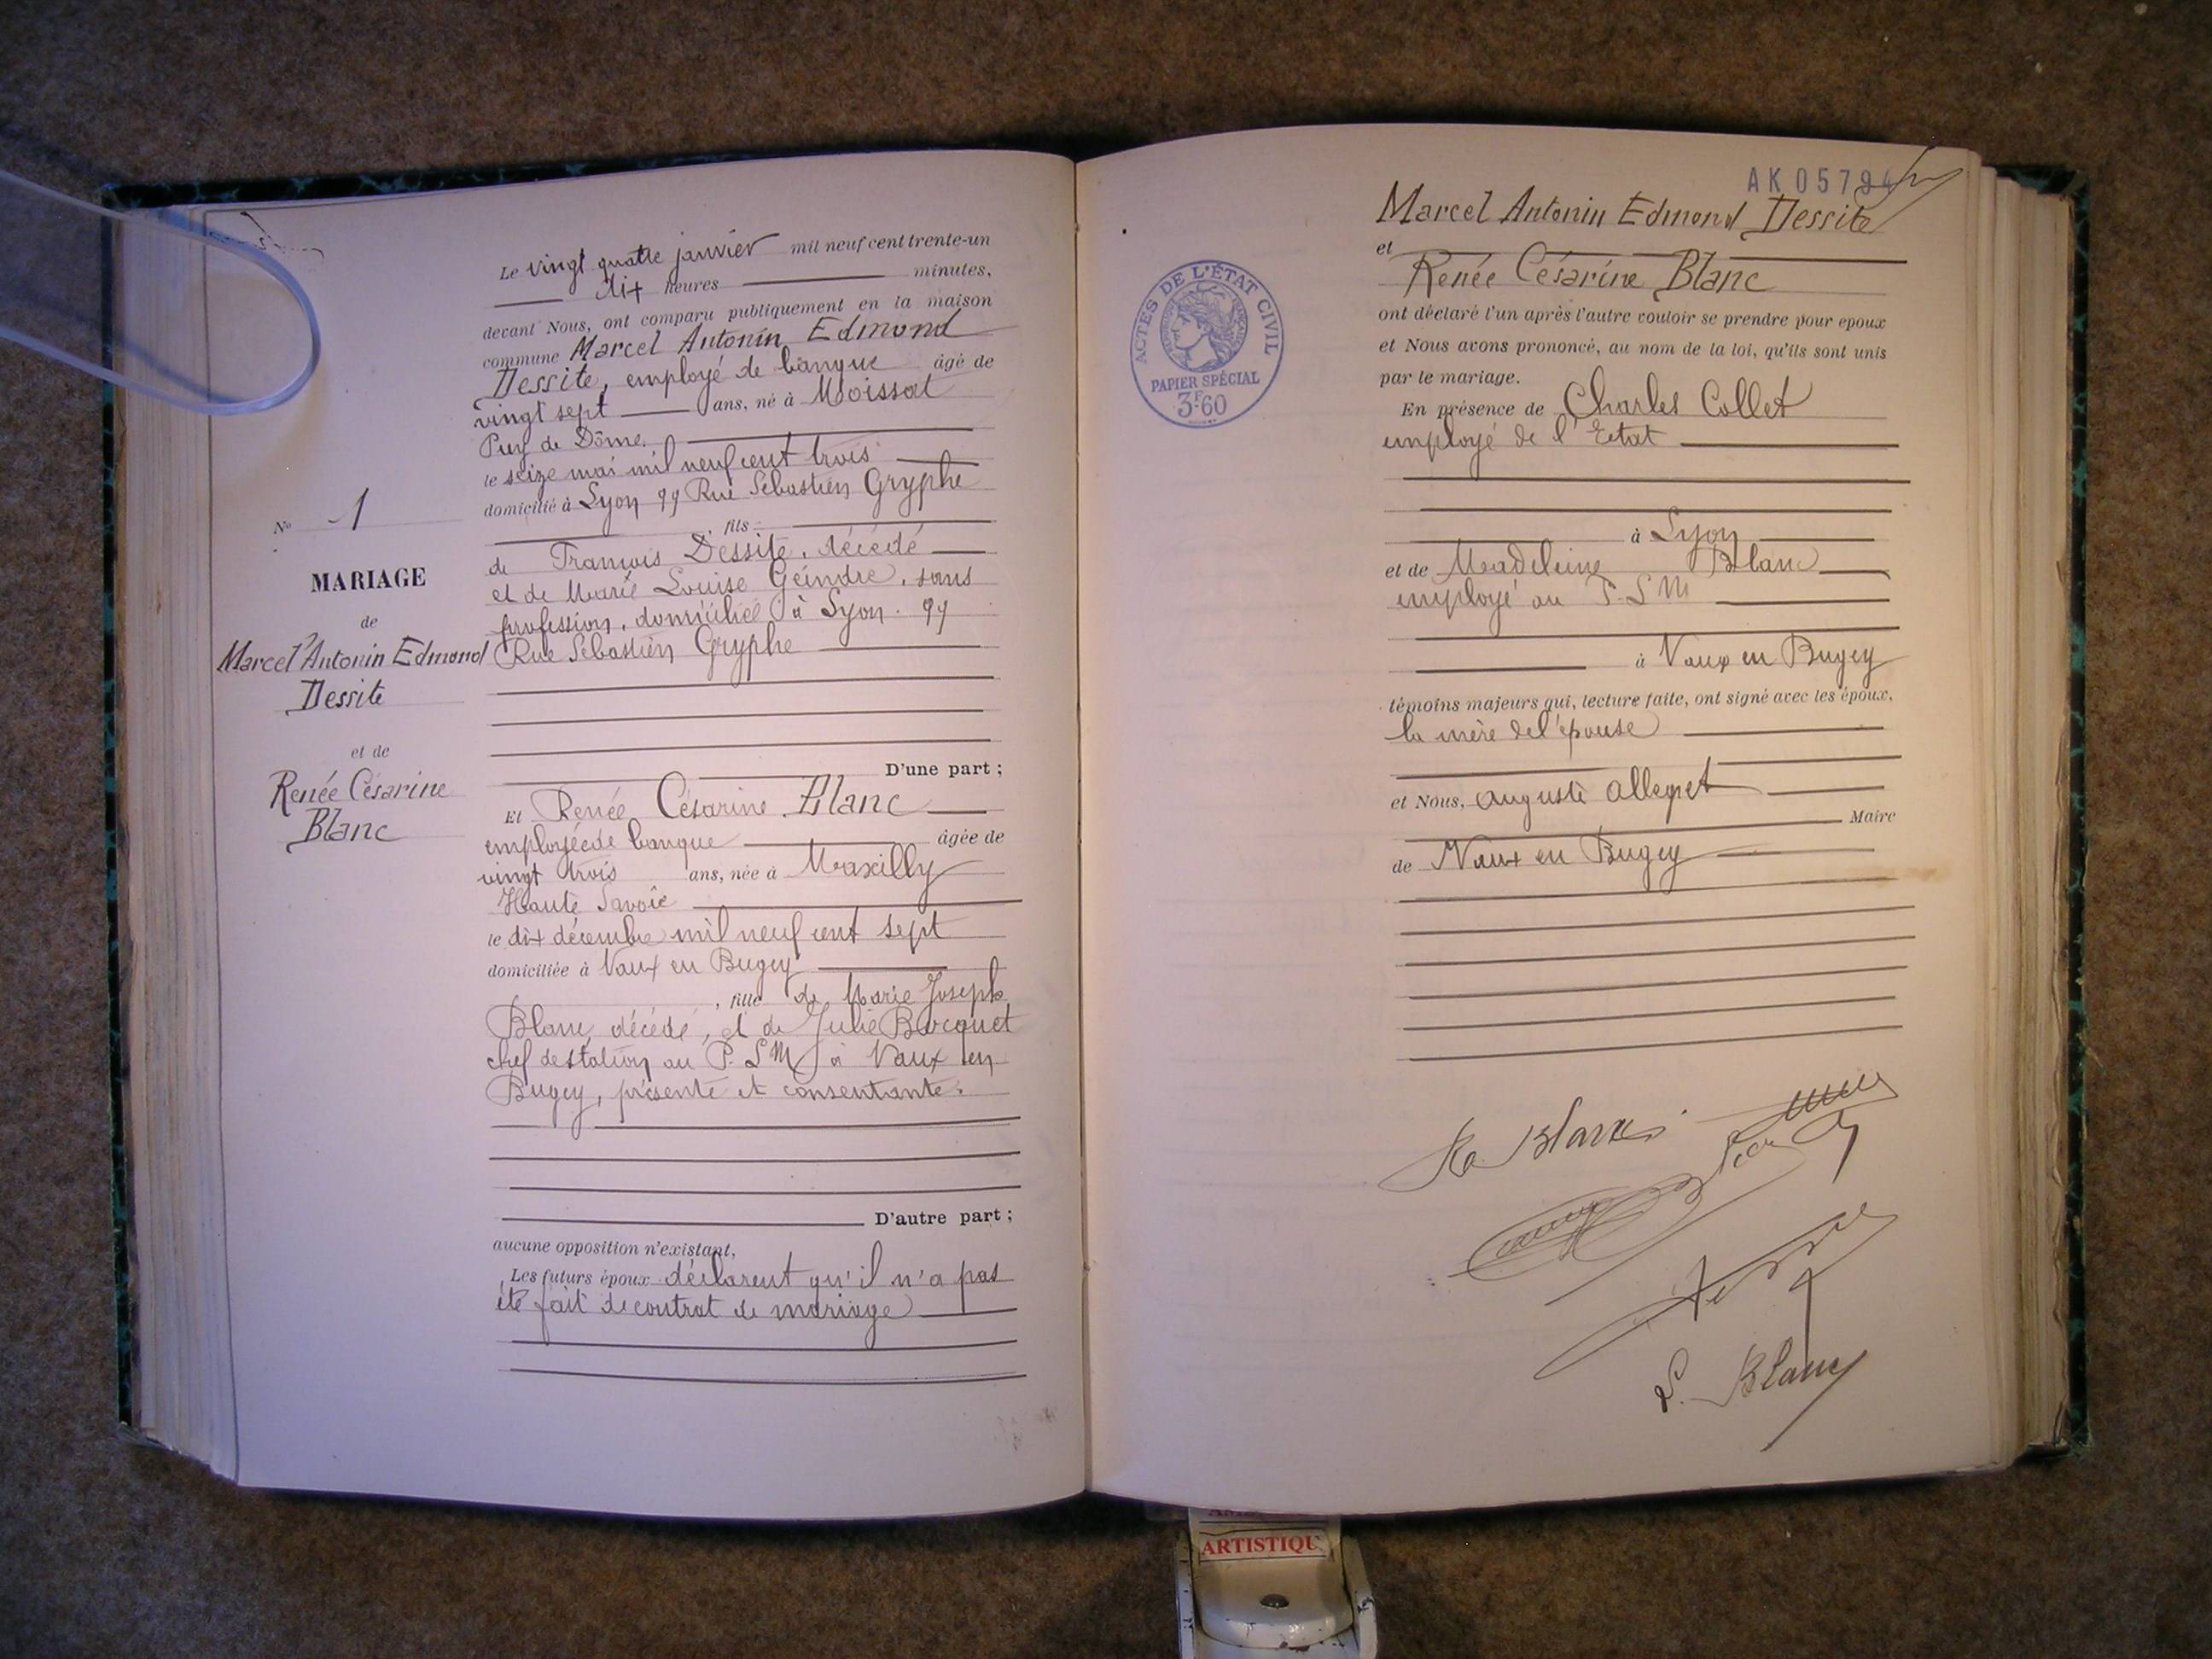 N° 1
MARIAGE
de
Marcel Antonin Edmond
Dessite
et de
Renée Césarine
Blanc
Le vingt quatre janvier mil neuf cent trente-un
dix heures minutes,
devant Nous, ont comparu publiquement en la maison
commune Marcel Antonin Edmond
Dessite, employé de banque âgé de
vingt sept ans, né à Moissat
Puy de Dôme.
le seize mai mil neuf cent trois
domicilié à Lyon 99 Rue Sébastien Gryphe
fils
de François Dessite, décédé
et de Marie Louise Geindre, sans
profession, domiciliée à Lyon. 99
Rue Sébastien Gryphe
D'une part ;
Et Renée Césarine Blanc
employée de banque âgée de
vingt trois ans, née à Maxilly
Haute Savoie
le dix décembre mil neuf cent sept
domiciliée à Vaux en Bugey
, fille de Marie Joseph
Blanc, décédé, et de Julie Bocquet
chef de station au P.L.M à Vaux en
Bugey, présente et consentante.
D'autre part ;
aucune opposition n'existant,
Les futurs époux déclarent qu'il n'a pas
été fait de contrat de mariage
AK 05794
Marcel Antonin Edmond Dessite
et
Renée Césarine Blanc
ont déclaré l'un après l'autre vouloir se prendre pour epoux
et Nous avons prononcé, au nom de la loi, qu'ils sont unis
par le mariage.
En présence de Charles Collet
employé de l'Etat
à Lyon
et de Madeleine Blanc
employé au P.L.M
à Vaux en Bugey
témoins majeurs qui, lecture faite, ont signé avec les époux,
la mère de l'épouse
et Nous, Auguste
Maire
de Vaux en Bugey
ACTES DE L'ÉTAT CIVIL
RÉPUBLIQUE FRANÇAISE
PAPIER SPÉCIAL
3F.60
Blanc
Blanc
ARTISTIQU